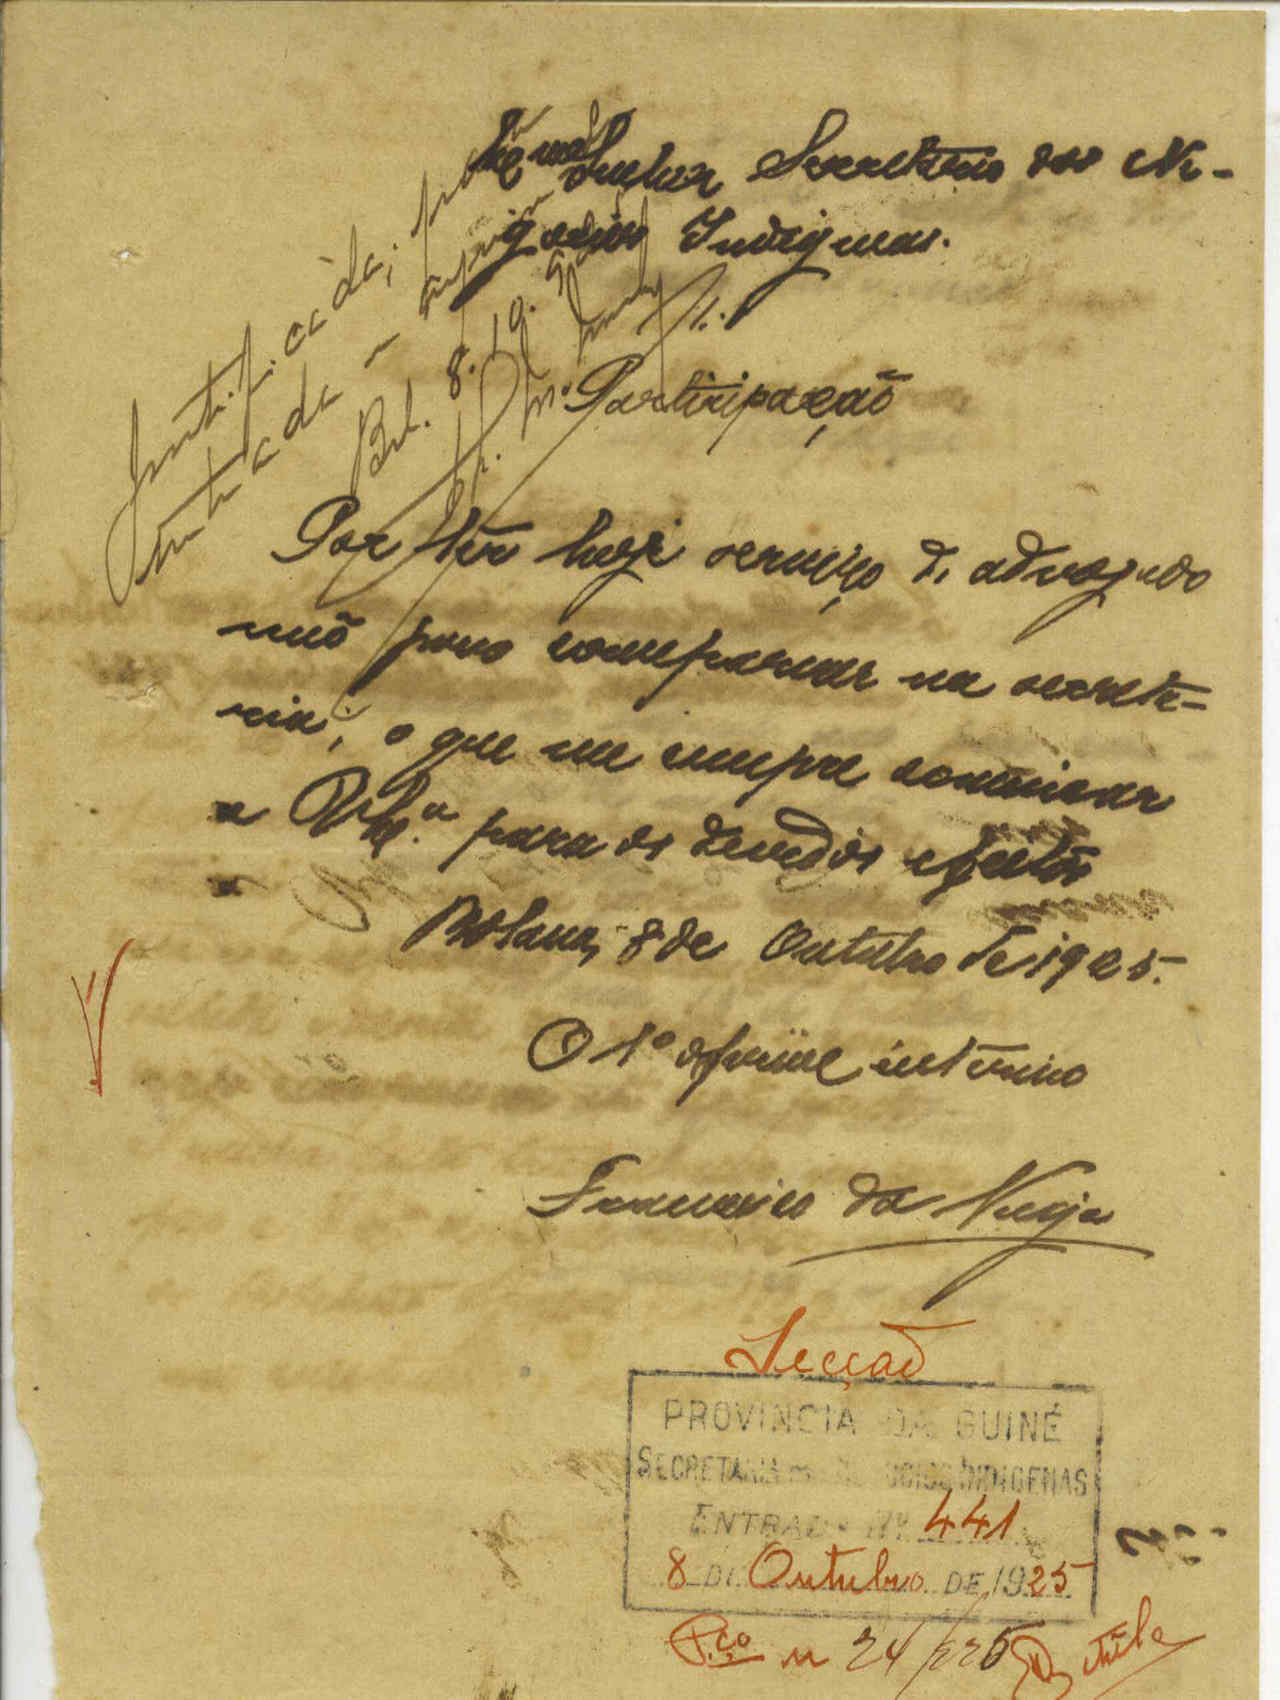 Senhor Secretario dos Ne-
gocios Indigenas.
Justificada;
entrada
Bol. 8.10.925
Participação
Por ter hoje serviço de advogado
não posso comparecer na secreta-
ria, o que me cumpre comunicar
a V. Ex.ª para os devidos efeitos
Bolama, 8 de Outubro de 1925.
O 1º oficial interino
Francisco da Veiga
Secção
PROVINCIA DA GUINÉ
SECRETARIA DOS NEGOCIOS INDIGENAS
ENTRADA Nº 441
8 DE Outubro DE 1925
P.ço n 24/225